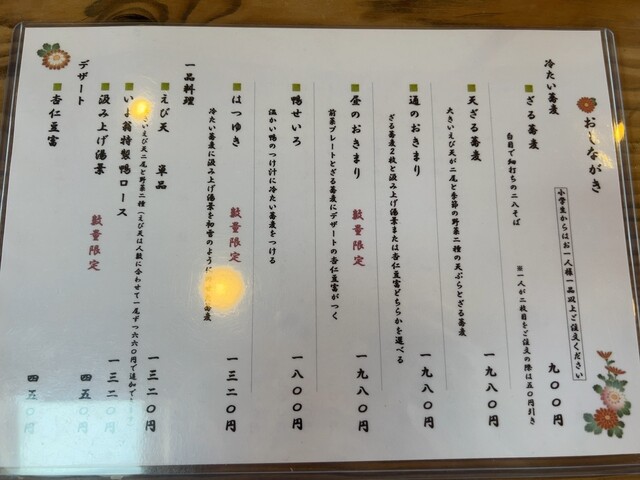 おしながき
小学生からはお一人様一品以上ご注文ください
冷たい蕎麦
ざる蕎麦 九〇〇円
白目で細打ちの二八そば
※一人が二枚目をご注文の際は五〇円引き
天ざる蕎麦 一九八〇円
大きいえび天が二尾と季節の野菜二種の天ぷらとざる蕎麦
通のおきまり 一九八〇円
ざる蕎麦2枚と汲み上げ湯葉または杏仁豆富どちらかを選べる
昼のおきまり 数量限定 一九八〇円
前菜プレートとざる蕎麦にデザートの杏仁豆富がつく
鴨せいろ 一八〇〇円
温かい鴨のつけ汁に冷たい蕎麦をつける
はつゆき 数量限定 一三二〇円
冷たい蕎麦に汲み上げ湯葉を初雪のように 蕎麦
一品料理
えび天 単品 一三二〇円
えび天二尾と野菜二種(えび天は人数に合わせて一尾ずつ六六〇円で追加で
いよ翁特製鴨ロース 一三二〇円
汲み上げ湯葉 数量限定 四五〇円
デザート
杏仁豆富 四五〇円